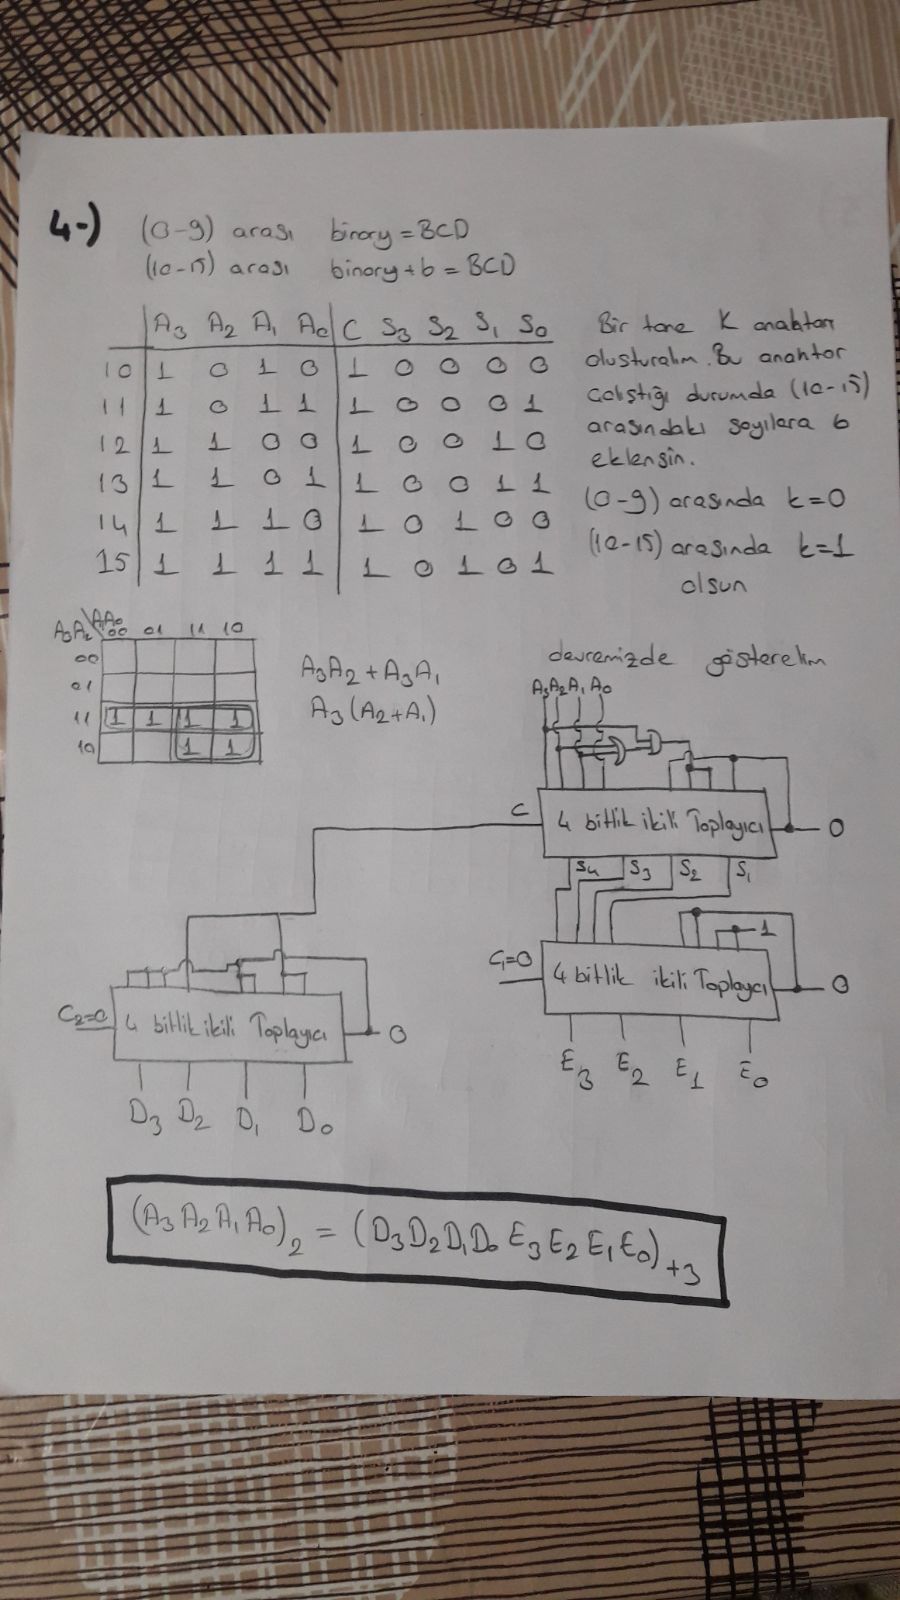 4-) (0-9) arası binary = BCD
(10-15) arası binary + 6 = BCD
A3 A2 A1 A0 C S3 S2 S1 S0
10 1 0 1 0 1 0 0 0 0
11 1 0 1 1 1 0 0 0 1
12 1 1 0 0 1 0 0 1 0
13 1 1 0 1 1 0 0 1 1
14 1 1 1 0 1 0 1 0 0
15 1 1 1 1 1 0 1 0 1
Bir tane K anahtarı
oluşturalım. Bu anahtar
çalıştığı durumda (10-15)
arasındaki sayılara 6
eklensin.
(0-9) arasında k=0
(10-15) arasında k=1
olsun
A3A2\A1A0 00 01 11 10
00
01
11 1 1 1 1
10 1 1
A3A2 + A3A1
A3(A2+A1)
devremizde gösterelim
A3 A2 A1 A0
C 4 bitlik ikili Toplayıcı 0
S4 S3 S2 S1
1
C1=0 4 bitlik ikili Toplayıcı 0
E3 E2 E1 E0
C2=0 4 bitlik ikili Toplayıcı 0
D3 D2 D1 D0
(A3 A2 A1 A0)2 = (D3 D2 D1 D0 E3 E2 E1 E0)+3